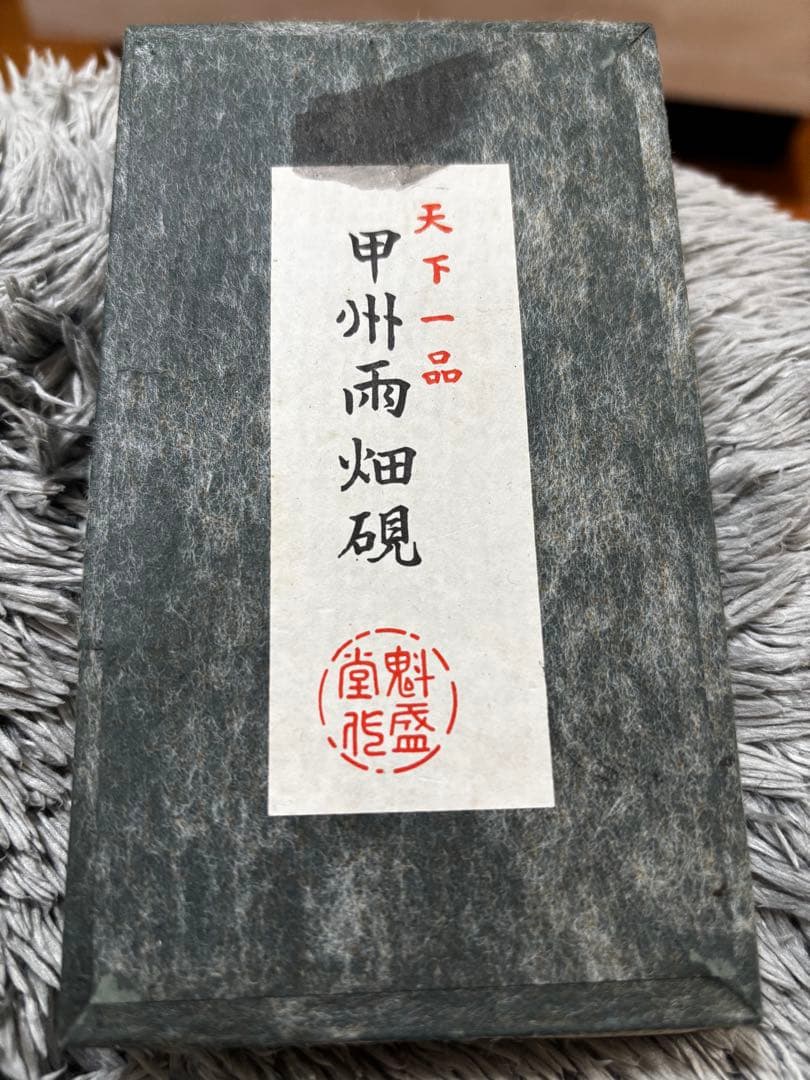 天下一品
甲州雨畑硯
魁盛
堂作